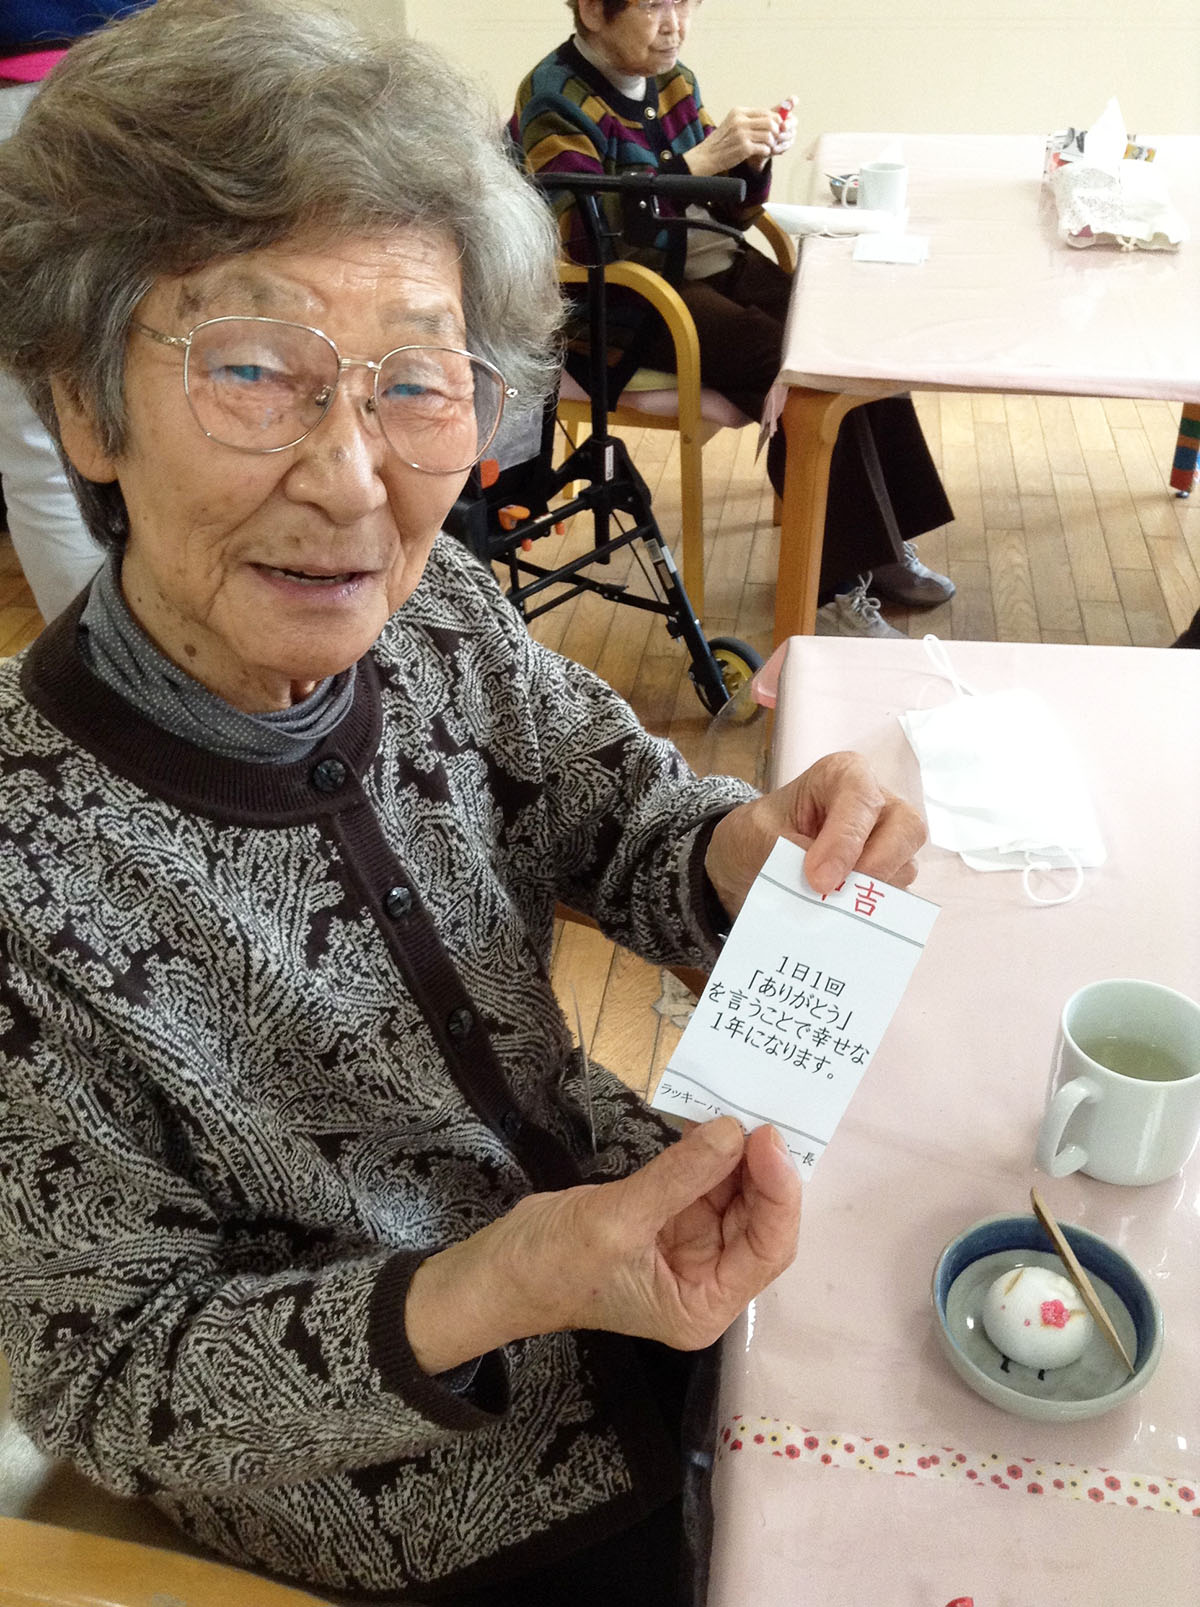 吉
1日1回
「ありがとう」
を言うことで幸せな
1年になります。
ラッキーパ
ー長